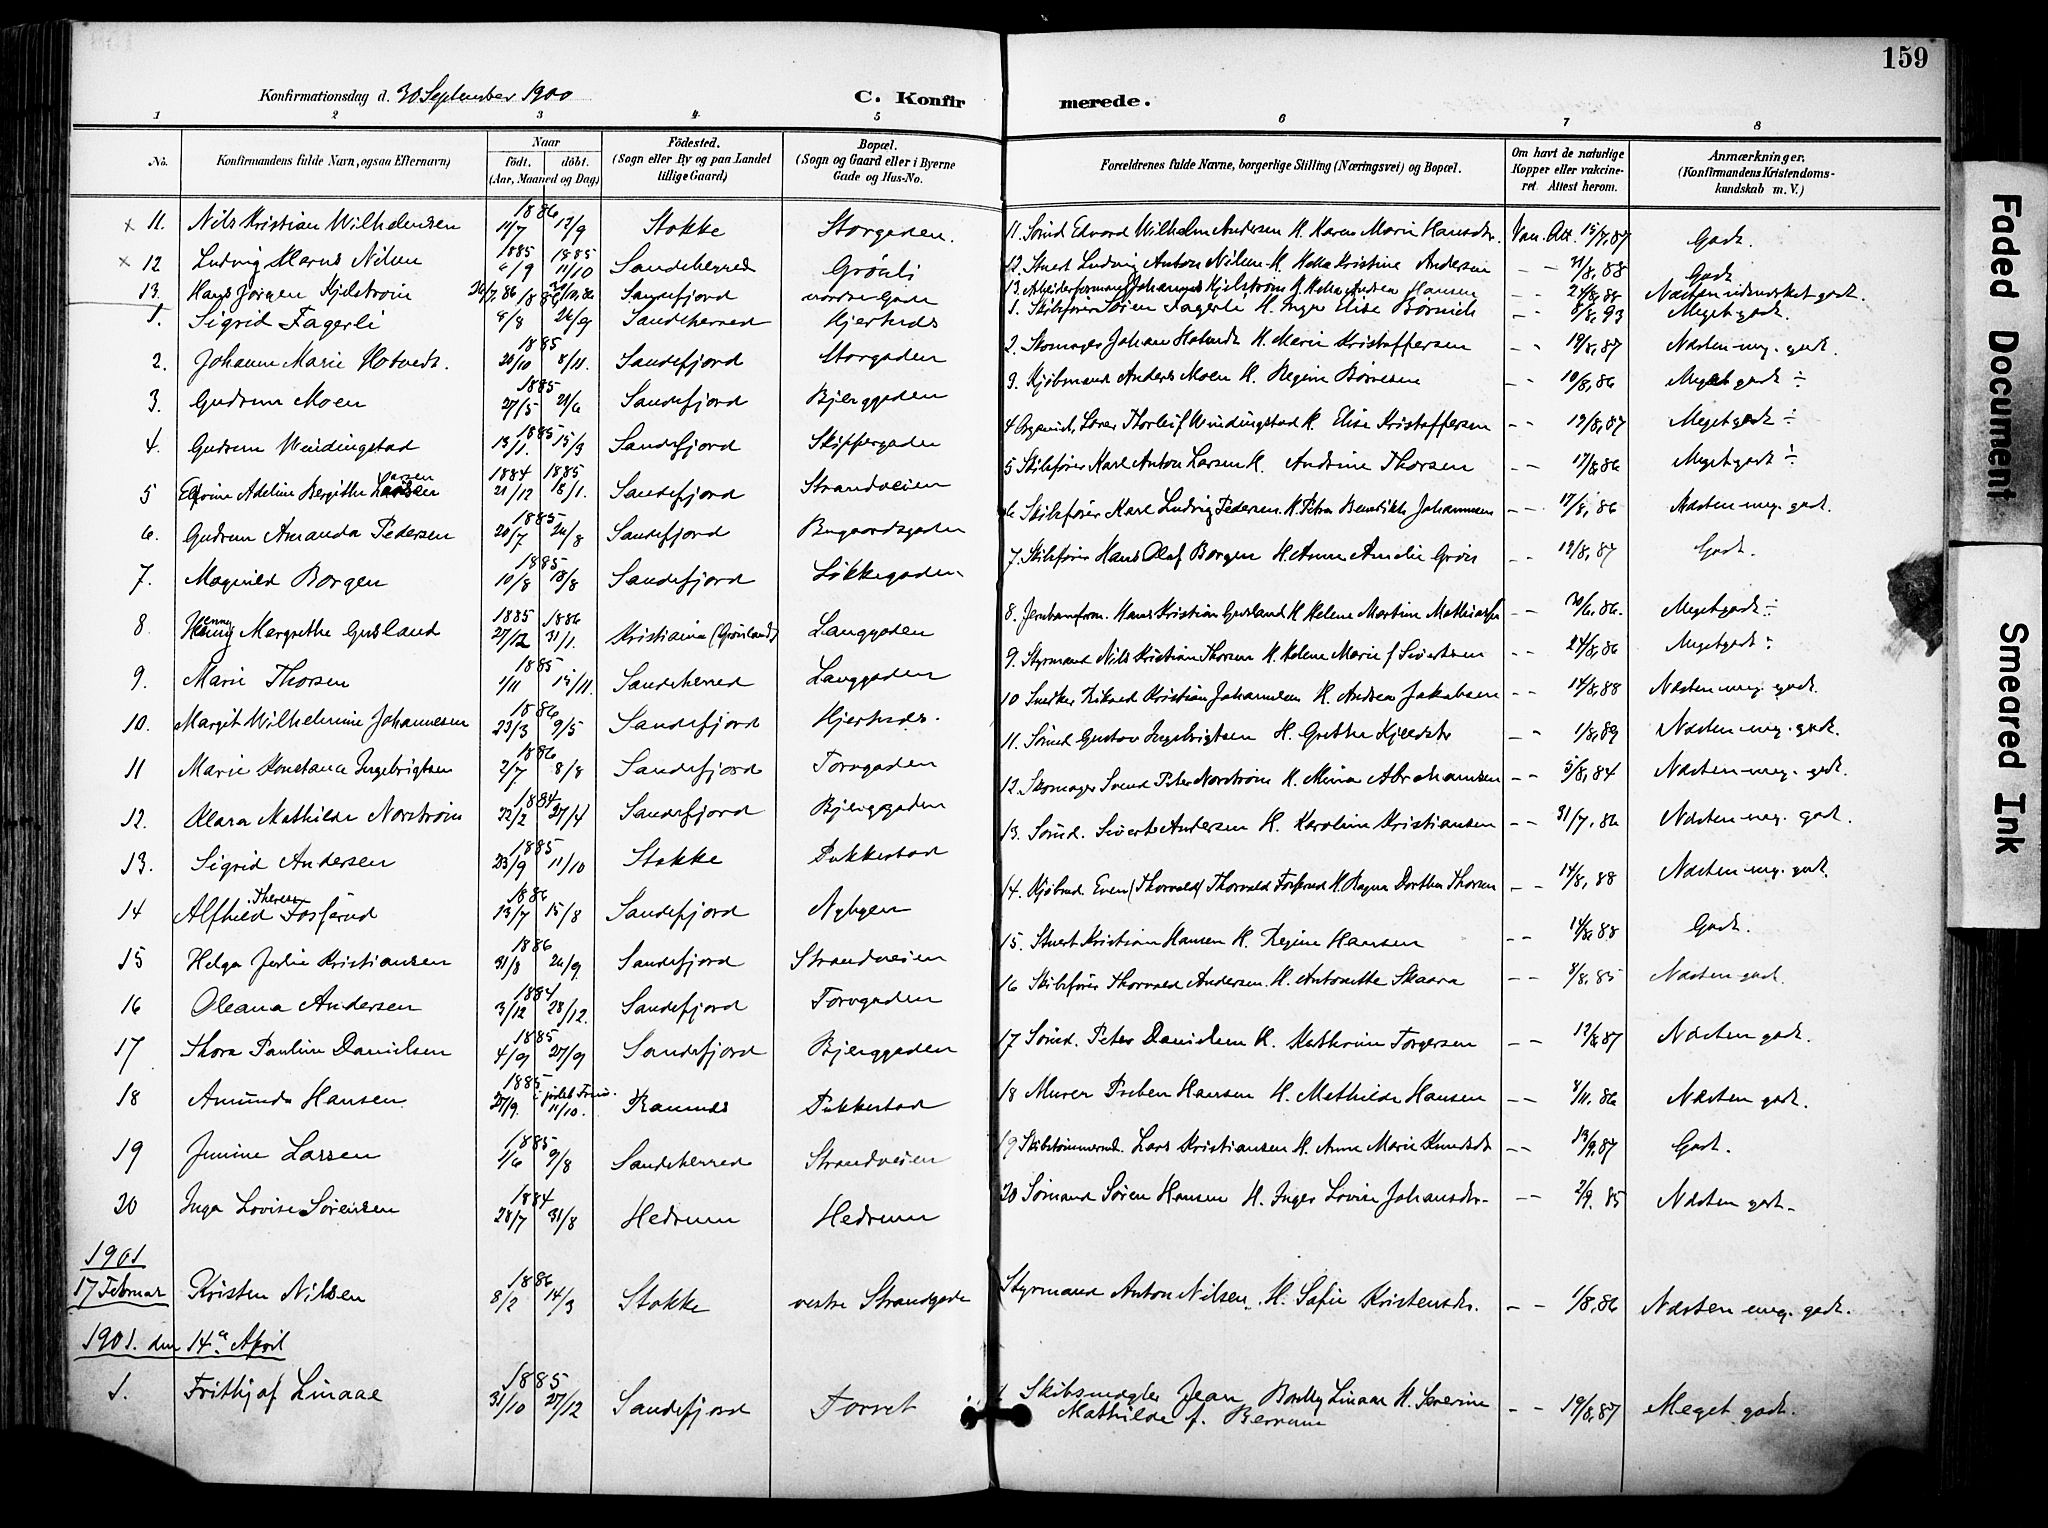 159
Konfirmationsdag d. 30 September 1900
C. Konfirmerede.
1 2 3 4 5 6 7 8
No. Konfirmandens fulde Navn, ogsaa Efternavn) Naar födt. döbt. (Aar, Maaned og Dag) Födested. (Sogn eller By og paa Landet tillige Gaard) Bopæl. (Sogn og Gaard eller i Byerne Gade og Hus-No. Forældrenes fulde Navne, borgerlige Stilling (Næringsvei) og Bopæl. Om havt de naturlige Kopper eller vakcineret. Attest herom. Anmærkninger. (Konfirmandens Kristendomskundskab m. V.)
x 11. Nils Kristian Wilhelmsen 1886 11/7 12/9 Stokke Storgaden. 11. Sömd Edvard Wilhelm Andersen H. Karen Marie Hansdr. Vac. Att. 15/7, 87 Godt.
x 12 Ludvig Marius Nilsen 1885 6/9 1885 11/10 Sandeherred Grönli 12. Stuert Ludvig Anton Nilsen H. Helle Kristine Andersen - - 21/8, 88 Godt.
13. Hans Jørgen Kjelstrøm Sandefjord nordre Gade 13. Arbeiderformand Johannes Kjelstrøm H. Helle Andrea Hansen - - 24/8, 86 Næsten udmerket godt.
1. Sigrid Fagerli 8/8 26/9 Sandeherred Hjertnes 1. Skibsfører Søren Fagerli H. Inger Elise Bornich - - 8/8, 93 Meget godt.
2. Johanne Marie Hotvedt. 1885 20/10 8/11. Sandefjord Storgaden 2. Skomager Johan Hotvedt H. Marie Kristoffersen - - 19/8, 87 Næsten meg. godt.
3. Gudrun Moen 1885 27/5 21/6 Sandefjord Bjerggaden 3. Kjöbmand Anders Moen H. Regine Börresen - - 10/8, 86 Meget godt ÷
4. Gudrun Windingstad 1885 13/1. 15/3 Sandefjord Skippergaden 4 Organist, Lærer Thorleif Windingstad H. Elise Kristoffersen - - 12/8, 87 Meget godt ÷
5 Adeline Bergithe Larsen 1884 21/12 1885 18/1. Sandefjord Strandveien 5 Skibsfører Karl Anton Larsen H. Andrine Thorsen - - 17/8, 86 Meget godt ÷
6. Gudrun Amanda Pedersen 1885 20/7 26/8 Sandefjord Bugaardsgaden 6 Skibsfører Karl Ludvig Pedersen. H. Petra Benedikte Johannesen - - 17/8, 86 Næsten meg. godt.
7. Magnild Borgen 1885 10/8 18/8 Sandefjord Løkkegaden 7. Skibsfører Hans Olaf Borgen H. Anne Amalie Grøn - - 12/8, 87 Godt.
8 Henny Margrethe Gusland 1885 27/12 1886 31/1. Kristiania (Grønland) Langgaden 8. Jernbaneform. Hans Kristian Gusland H. Helene Martine Mathiasen - - 20/6, 86. Meget godt ÷
9. Marie Thorsen 1885 1/11 15/11. Sandeherred Langgaden 9. Styrmand Nils Kristian Thorsen H. Helene Marie f. Sivertsen - - 24/8, 86 Meget godt ÷
10. Margit Wilhelmine Johannesen 1886 23/3 9/5 Sandefjord Hjertnes. 10 Snedker Rikard Kristian Johannesen H. Andrea Jakobsen - - 14/8, 88 Næsten meg. godt.
11 Marie Konstance Ingebrigtsen 1886 2/7 8/8 Sandefjord Torvgaden 11. Sömd Gustav Ingebrigtsen H. Grethe Kjeldstr - - 1/8, 89 Næsten meg. godt.
12. Klara Mathilde Norstrøm 1884 22/2 27/4 Sandefjord Bjerggaden 12. Skomager Svend Peter Norstrøm H. Mina Abrahamsen - - 5/8, 84 Næsten meg. godt.
13. Sigrid Andersen 1885 23/9 11/10 Stokke Pukkestad 13. Sömd. Sivert Andersen H. Karoline Kristiansen - - 31/7, 86 Næsten meg. godt.
14 Alfhild Therese Fosserud 1886 13/7 15/8 Sandefjord Nybyen 14. Kjöbmd Even (Thorvald) Thorvald Fosserud H. Ragna Dorthea Thorsen - - 14/8, 88 Næsten meg. godt.
15 Helga Julie Kristiansen 1886 31/8 26/9 Sandefjord Strandveien 15. Stuert Kristian Hansen H. Regine Hansen - - 14/8, 88 Godt.
16 Oleana Andersen 1884 3/12 28/12. Sandefjord Torvgaden 16 Skibsfører Thorvald Andersen. H. Antonette Skaara - - 8/8, 85 Næsten godt.
17 Thora Pauline Danielsen 1885 4/9 27/9 Sandefjord Bjerggaden 17 Sömd. Peter Danielsen H. Kathrine Torgersen - - 12/8, 87 Næsten godt.
18 Amunda Hansen 1885 27/9. 11/10. Ramnes Pukkestad 18 Murer Preben Hansen H. Mathilde Hansen - - 8/11. 86 Næsten godt.
19 Junine Larsen 1885 1/6 9/8 Sandeherred Strandveien 19 Skibstömmermd. Lars Kristiansen H. Anne Marie Knudsdr - - 13/9, 87 Godt.
20 Inga Lovise Sørensen 1884 28/7 31/8 Hedrum Hedrum 20 Sömand Sören Hansen H. Inger Lovise Johansdr. - - 2/9. 85 Næsten godt.
1901
17 Februar Kristen Nilsen 1886 8/2 14/3 Stokke vestre Strandgade Styrmand Anton Nilsen, H. Sofie Kristensdr. - - 1/8, 86 Næsten meg. godt.
1901. den 14de April
1. Frithjof Linaae 1885 31/10 27/12 Sandefjord Torvet 1 Skibsmægler Jean Linaae H. Severine Mathilde f. Berrum - - 19/8, 87 Meget godt.
Faded Document
Smeared Ink